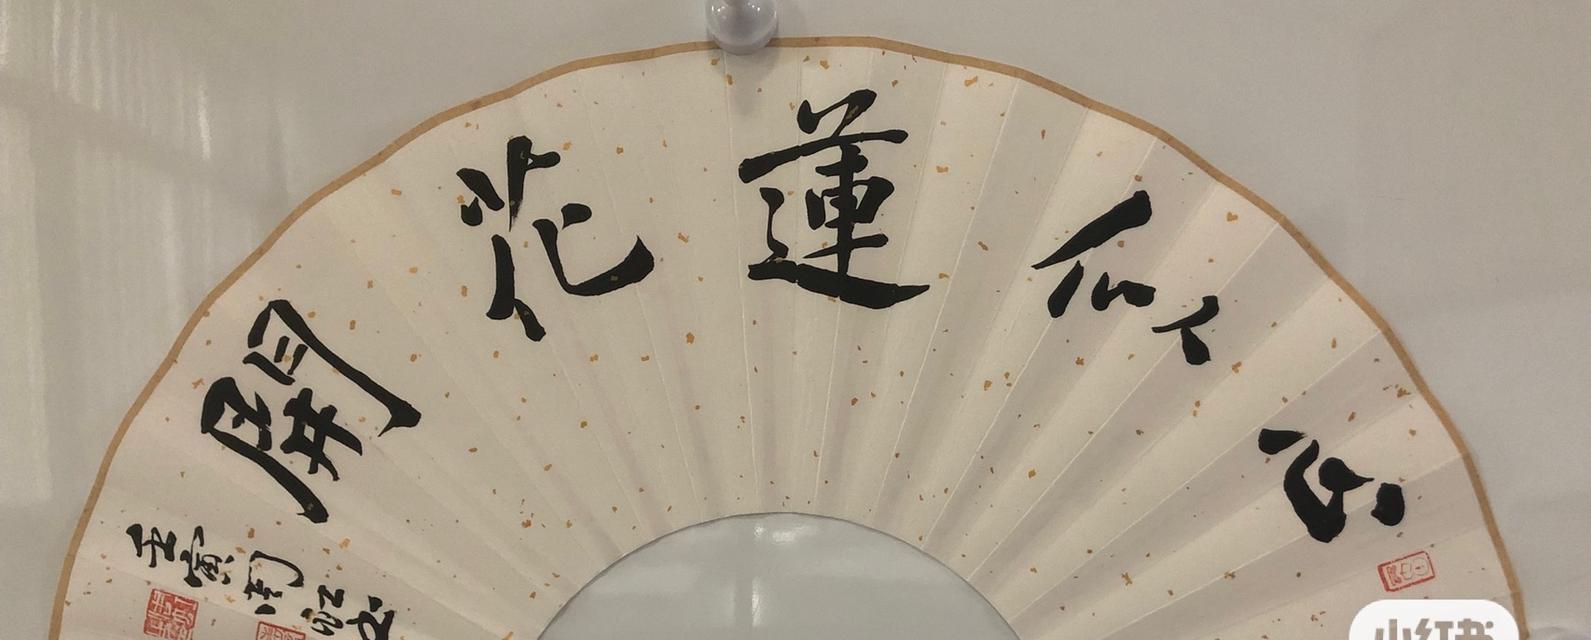 心似蓮花開
壬寅
小红书